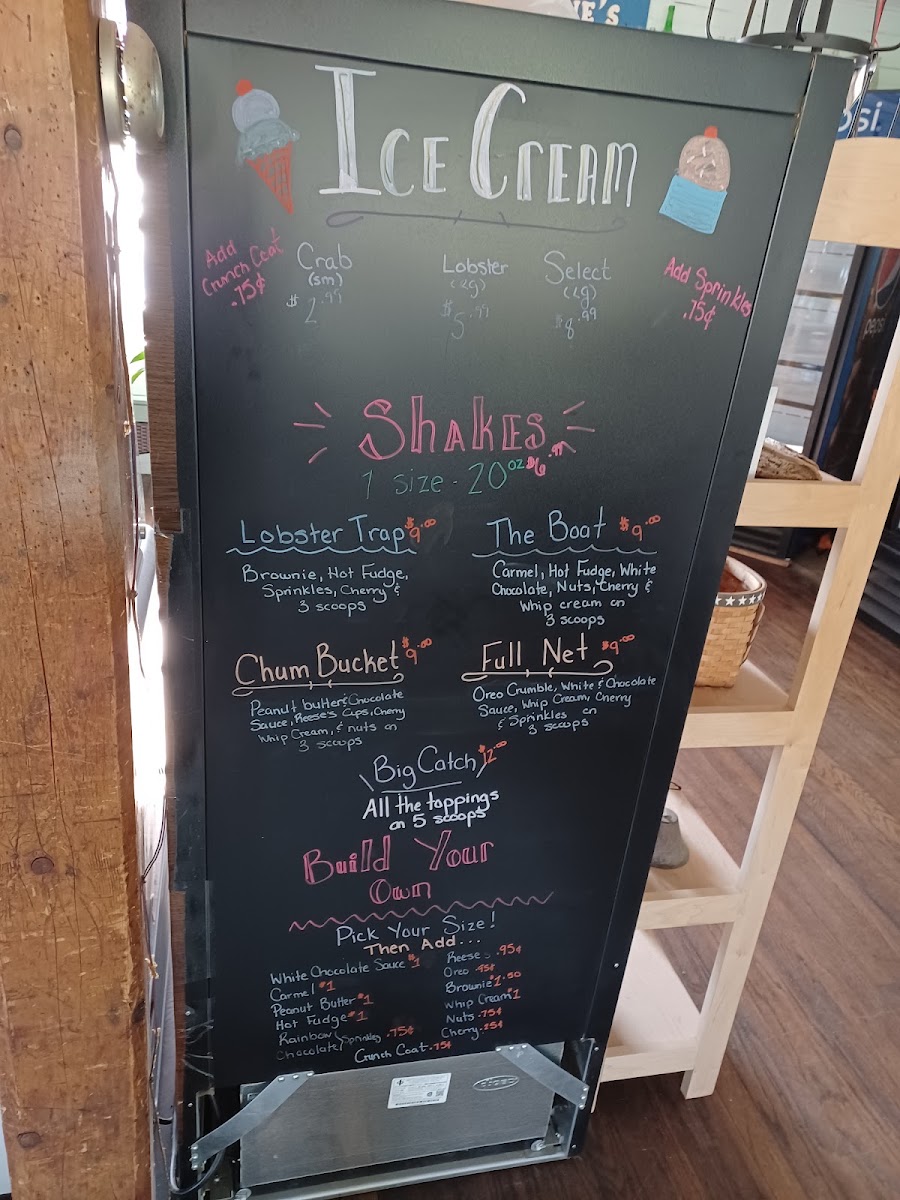 E's
Ice Cream
Add
Crunch Coat
.75¢
Crab
(sm)
$2.99
Lobster
$5.99
Select
$8.99
Add Sprinkles
.75¢
Shakes
1 size - 20oz $6.99
Lobster Trap $9.00
Brownie, Hot Fudge,
Sprinkles, Cherry &
3 scoops
The Boat $9.00
Carmel, Hot Fudge, White
Chocolate, Nuts, Cherry &
Whip cream on
3 scoops
Chum Bucket $9.00
Peanut butter & Chocolate
Sauce, Reese's Cups, Cherry
Whip Cream, & nuts on
3 scoops
Full Net $9.00
Oreo Crumble, White & Chocolate
Sauce, Whip Cream, Cherry
& Sprinkles on
3 scoops
Big Catch $12.00
All the toppings
on 5 scoops
Build Your
Own
Pick Your Size!
Then Add...
White Chocolate Sauce $1
Carmel $1
Peanut Butter $1
Hot Fudge $1
Rainbow/
Chocolate Sprinkles .75¢
Reese's .95¢
Oreo .95¢
Brownie $1.50
Whip Cream $1
Nuts .75¢
Cherry
Crunch Coat .75¢
psi
pepsi